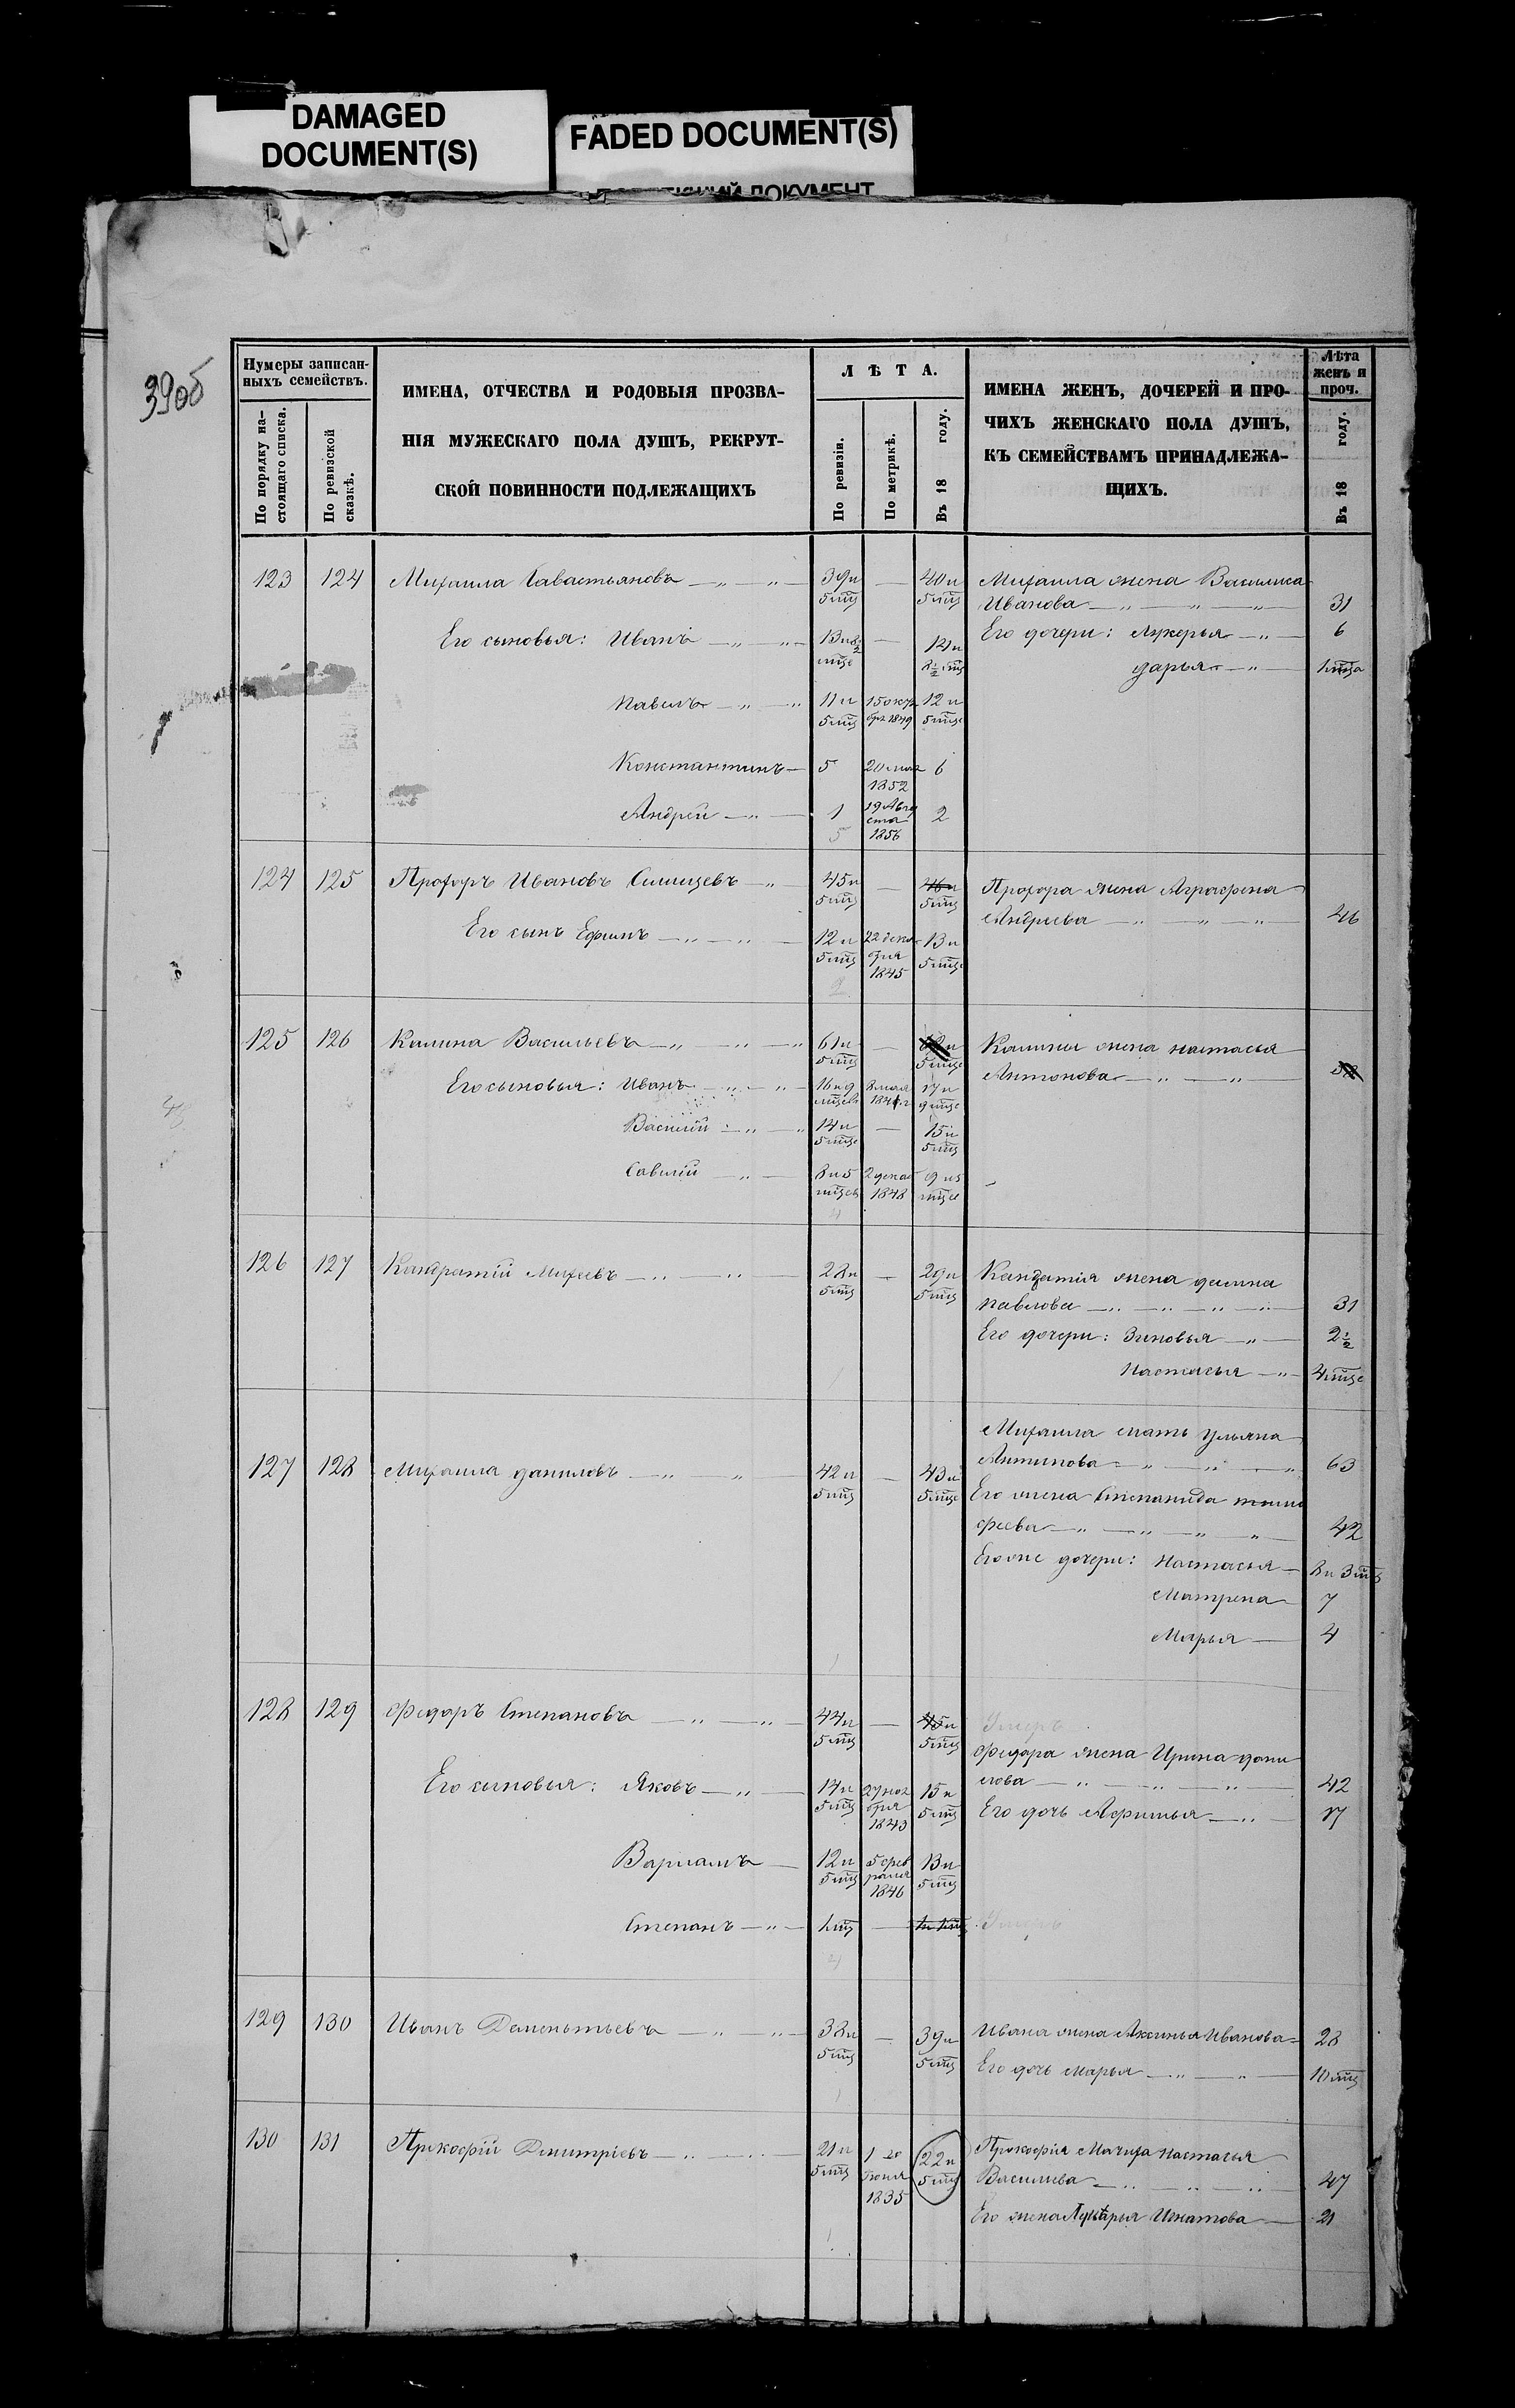 DAMAGED
DOCUMENT(S)
FADED DOCUMENT(S)
39об
Нумеры записан-
ныхъ семействъ.
По порядку на-
стоящаго списка.
По ревизской
сказкѣ.
ИМЕНА, ОТЧЕСТВА И РОДОВЫЯ ПРОЗВА-
НІЯ МУЖЕСКАГО ПОЛА ДУШЪ, РЕКРУТ-
СКОЙ ПОВИННОСТИ ПОДЛЕЖАЩИХЪ
ЛѢТА.
По ревизіи.
По метрикѣ.
Въ 18 году.
ИМЕНА ЖЕНЪ, ДОЧЕРЕЙ И ПРО-
ЧИХЪ ЖЕНСКАГО ПОЛА ДУШЪ,
КЪ СЕМЕЙСТВАМЪ ПРИНАДЛЕЖА-
ЩИХЪ.
Лѣта
женъ и
проч.
Въ 18 году.
123 124 Михаила Савастьяновъ 39 и 5 мц 40 и 5 мц Михаила жена Василиса
Иванова 31
Его сыновья: Иванъ 13 и 8½ мце 14 и 8½ мц Его дочери: Лукерья 6
Дарья 1 мца
Павелъ 11 и 5 мц 15 октября 1849 12 и 5 мце
Константинъ 5 20 мая 1852 6
Андрей 1 19 Августа 1856 2
5
124 125 Прохоръ Ивановъ Синицевъ 45 и 5 мц 46 и 5 мц Прохора жена Аграфена
Андреева 46
Его сынъ Ефимъ 12 и 5 мц 22 декабря 1845 13 и 5 мце
2
125 126 Калина Васильевъ 61 и 5 мц 62 и 5 мце Калины жена настасья
Антонова
Его сыновья: Иванъ 16 и 9 мцевъ 8 мая 1841 г 17 и 9 мце
Василій 14 и 5 мце 15 и 5 мц
Савелій 8 и 5 мцев 2 декаб 1848 9 и 5 мце
4
126 127 Кандратій Михеевъ 28 и 5 мц 29 и 5 мц Кандатія жена далина
Павлова 31
Его дочери: Зиновья 2½
Настасья 4 мце
1
127 128 Михаила даниловъ 42 и 5 мц 43 и 5 мце Михаила мать Ульяна
Антипова 63
Его жена Степанида тимо
феева 42
Его же дочери: Настасья 8 и 3 мц
Матрена 7
Марья 4
1
128 129 Федаръ Степановъ 44 и 5 мц 45 и 5 мц Умеръ
Федара жена Ирина дани
лова 42
Его сыновья: Яковъ 14 и 5 мц 27 ноября 1843 15 и 5 мц Его дочь Афимья 17
Варламъ 12 и 5 мц 5 февраля 1846 13 и 5 мц
Степанъ 1 мц 1 и 1 мц Умеръ
4
129 130 Иванъ Деменьтьевъ 38 и 5 мц 39 и 5 мц Ивана жена Аксинья Иванова 28
Его дочь марья 10 мц
1
130 131 Прокофій Дмитріевъ 21 и 5 мц 1 го Іюня 1835 22 и 5 мц Прокофія Мачиха настасья
Василева 47
Его жена Лукарья Игнатова 21
1